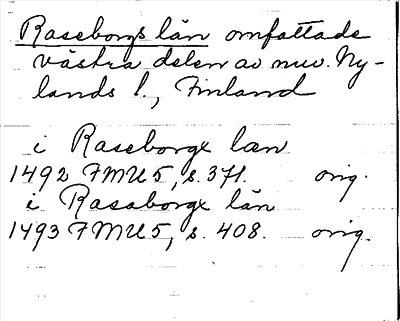 Raseborgs län omfattade
västra delen av nuv. Ny-
lands l., Finland
i Raseborgx læn
1492 FMU 5, s. 371. orig.
i Rasaborgx län
1493 FMU 5, s. 408. orig.